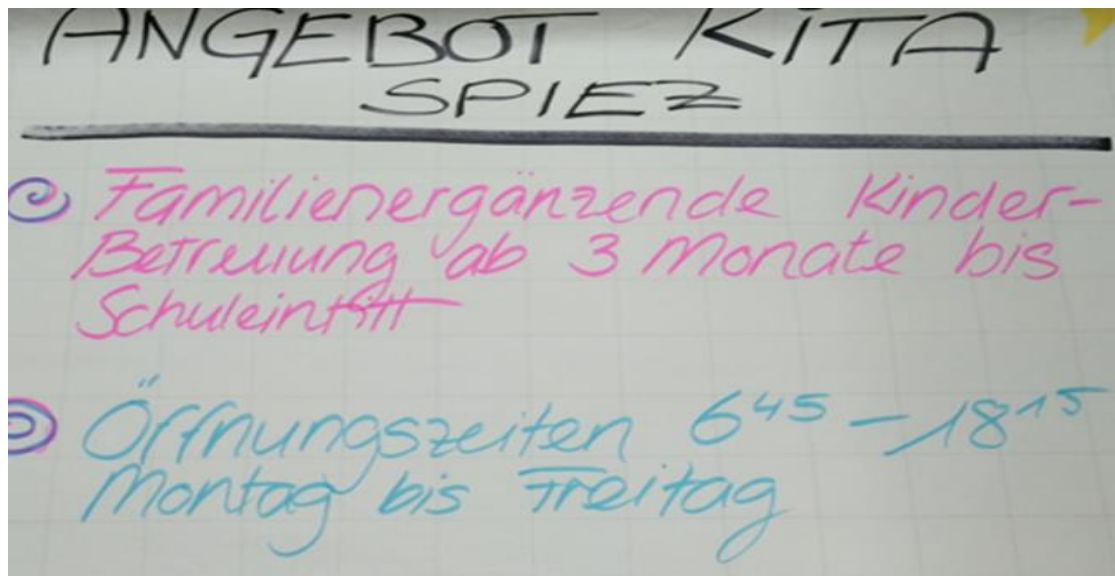 ANGEBOT KITA
SPIEZ
Familienergänzende Kinder-
Betreuung ab 3 Monate bis
Schuleintritt
Öffnungszeiten 6⁴⁵ – 18¹⁵
Montag bis Freitag